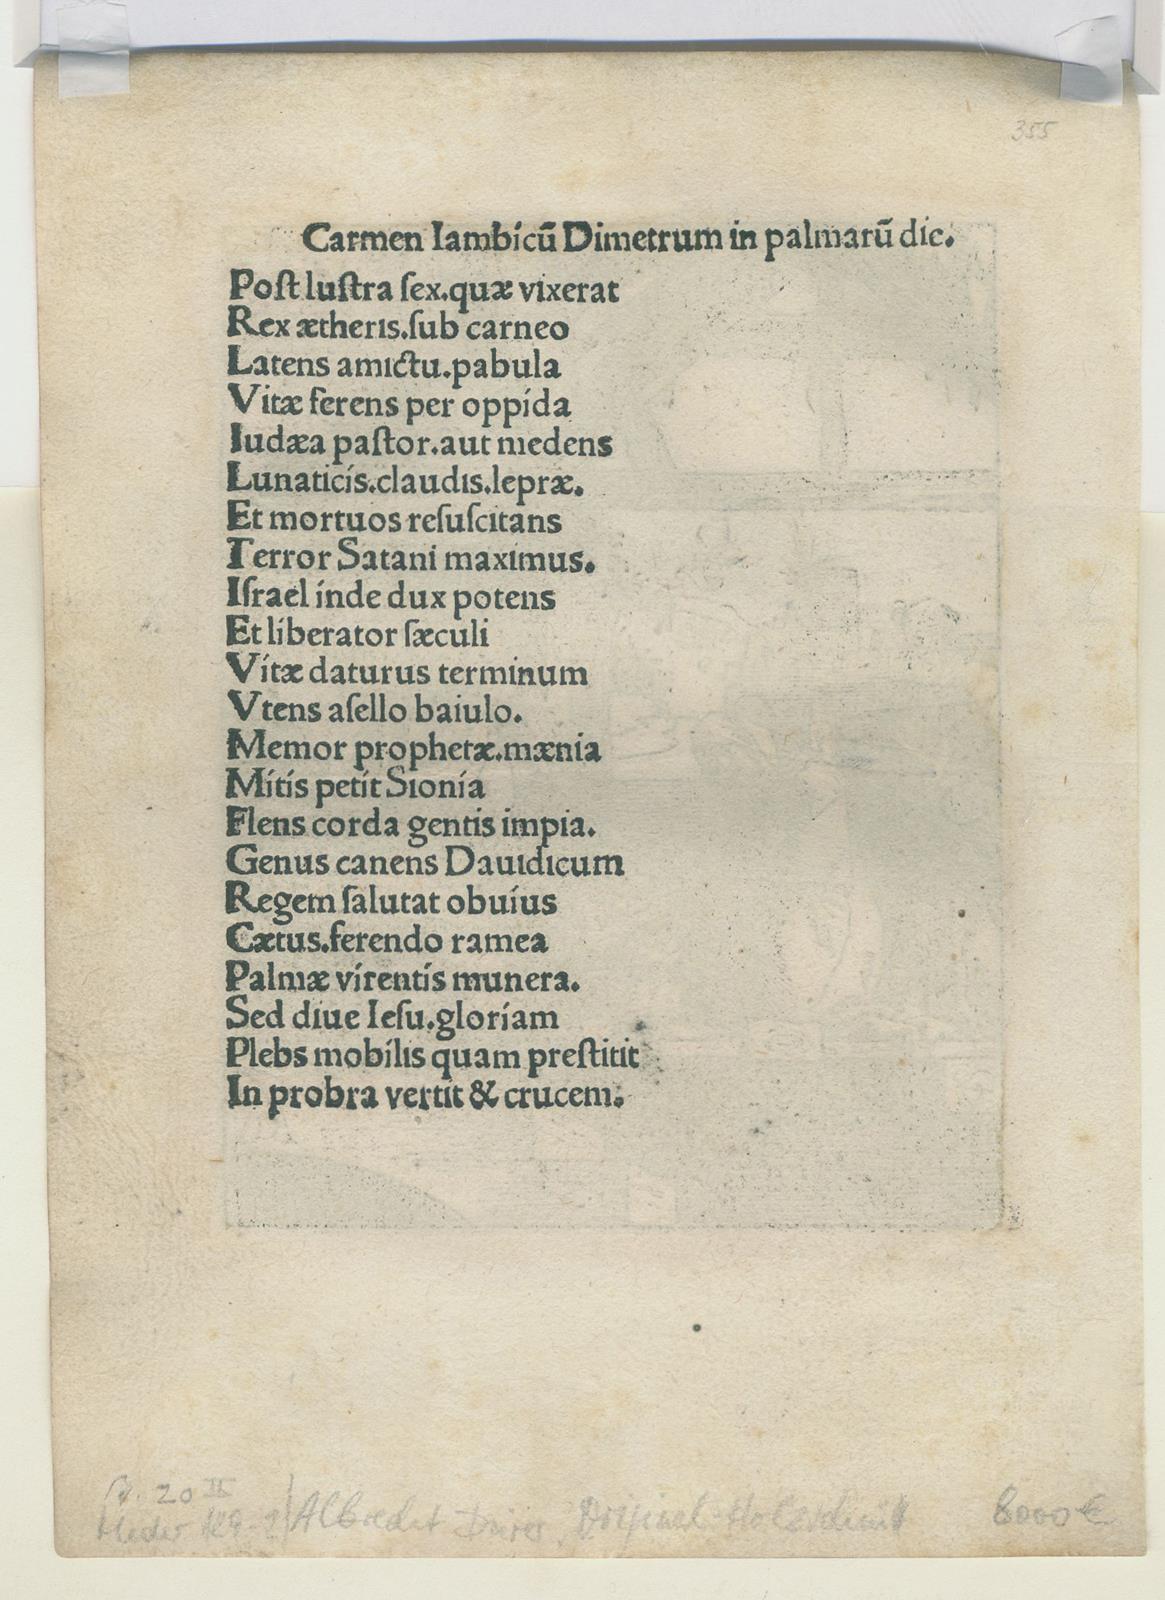 355
Carmen Iambicū Dimetrum in palmarū die.
Poſt luſtra ſex.quæ vixerat
Rex ætheris.ſub carneo
Latens amictu.pabula
Vitæ ferens per oppida
Iudæa paſtor.aut medens
Lunaticis.claudis.lepræ.
Et mortuos reſuſcitans
Terror Satani maximus.
Iſrael inde dux potens
Et liberator ſæculi
Vitæ daturus terminum
Vtens aſello baiulo.
Memor prophetæ.mænia
Mitis petit Sionia
Flens corda gentis impia.
Genus canens Dauidicum
Regem ſalutat obuius
Cætus.ferendo ramea
Palmæ virentis munera.
Sed diue Ieſu.gloriam
Plebs mobilis quam preſtitit
In probra vertit & crucem.
20 II
Meder Albrecht Dürer, Original-Holzschnitt 8000 €